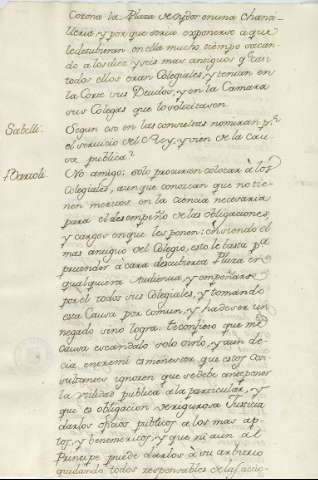 Corona la Plaza de Oydor en una Chanci-
lleria, y por que seria exponerse a que
le detubieran en ella mucho tiempo sacan-
do a los diez y seis mas antiguos q.e tan
todos ellos eran Colegiales, y tenian en
la Corte sus Deudos, y en la Camara
sus Colegas que lo solicitasen.
Sabelli. Segun eso en las consultas nominaran p.a
el servicio del Rey, y vien de la cau-
sa publica?
No amigo; solo procuran colocar à los
Colegiales, aunque conozcan que no tie-
nen meritos en la ciencia necesaria
para el desempeño de las obligaciones,
y cargos en que les ponen: en siendo el
mas antiguo del Colegio, esto le basta p.a
pretender à cara descubierta Plaza en
qualquiera Audiencia, y empeñarse
por el todos sus Colegiales, y tomando
esta Causa por comun, y ha de ser un
negado sino logra. Te confieso que me
causa escandalo solo oirlo, y aun de-
cia, en creeme es menester que estos con-
sultantes ignoren que se debe anteponer
la utilidad publica a la particular, y
que es obligacion de rigurosa Justicia
darlos oficios publicos a los mas ap-
tos, y benemeritos, y que ni aun al
Principe puede darlos à su arbitrio
quedando todos responsables de las